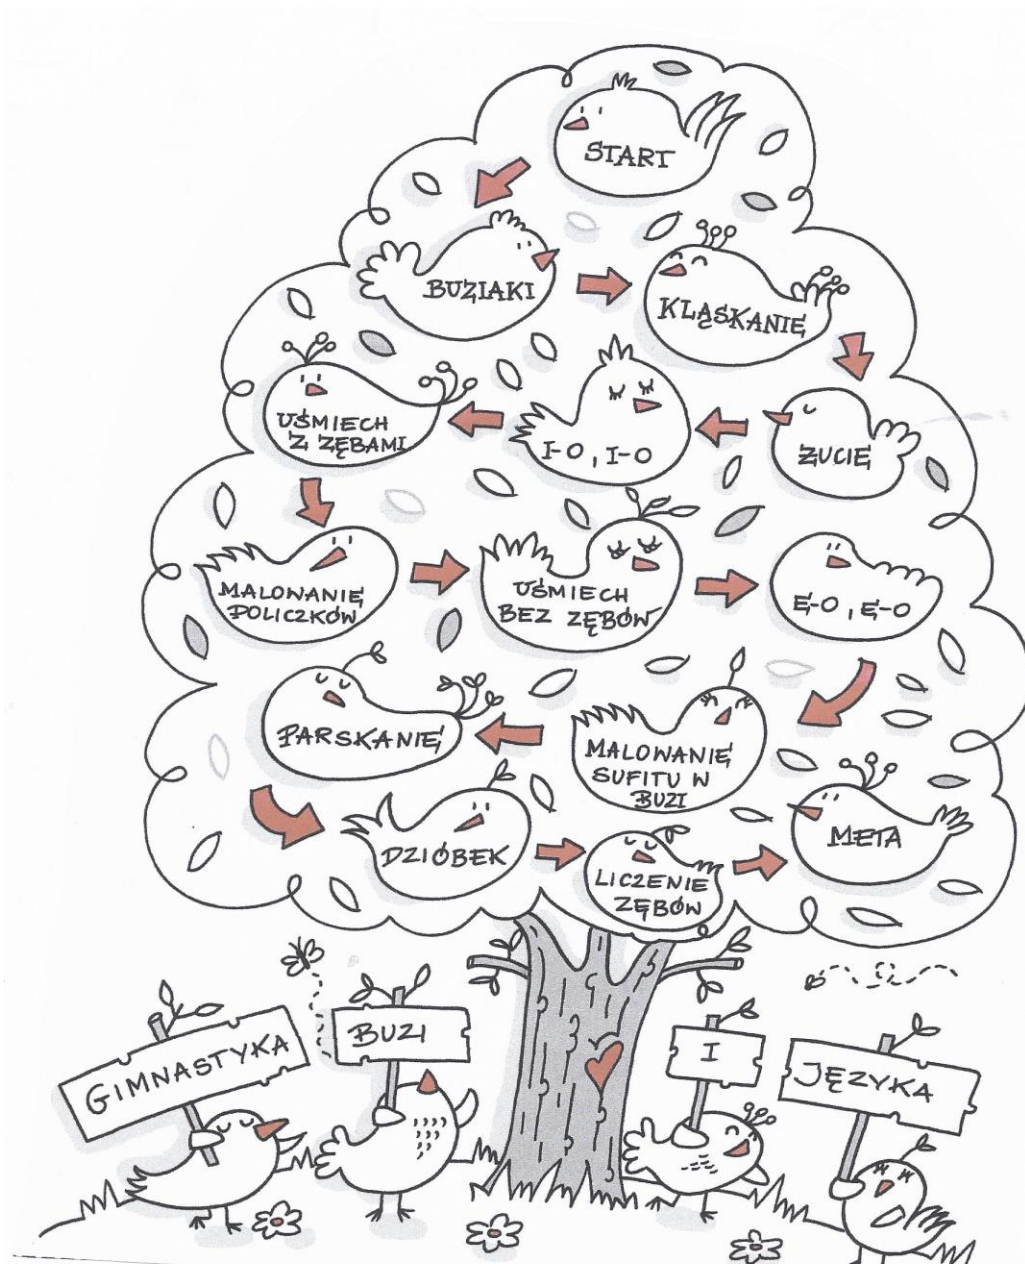 START
BUZIAKI
KLĄSKANIE
ŻUCIE
I-O, I-O
UŚMIECH
Z ZĘBAMI
MALOWANIE
POLICZKÓW
UŚMIECH
BEZ ZĘBÓW
E-O, E-O
MALOWANIE
SUFITU W
BUZI
PARSKANIE
DZIÓBEK
LICZENIE
ZĘBÓW
META
GIMNASTYKA
BUZI
I
JĘZYKA